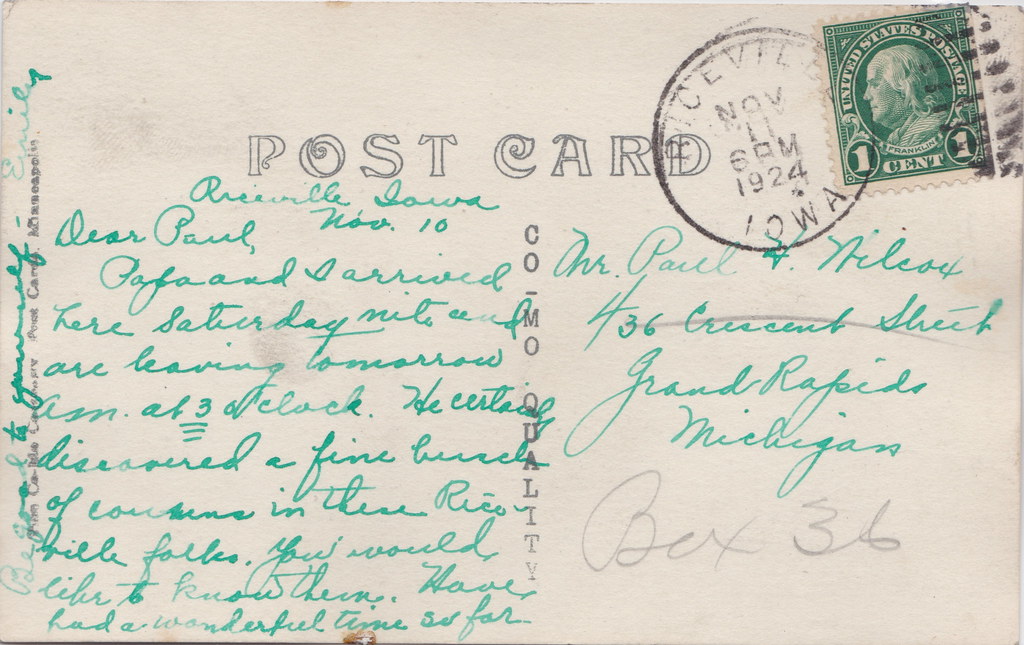 POST CARD
RICEVILLE
NOV
11
6AM
1924
IOWA
UNITED STATES POSTAGE
FRANKLIN
1 CENT 1
Riceville Iowa
Nov. 10
Dear Paul,
Papa and I arrived
here Saturday nite and
are leaving tomorrow
a.m. at 3 o'clock. He certainly
discovered a fine bunch
of cousins in these Rice-
ville folks. You would
like to know them. Have
had a wonderful time so far.
Be good to yourself - Emily
CO-MO QUALITY
Post Cards, Minneapolis
Mr. Paul H. Wilcox
436 Crescent Street
Grand Rapids
Michigan
Box 36